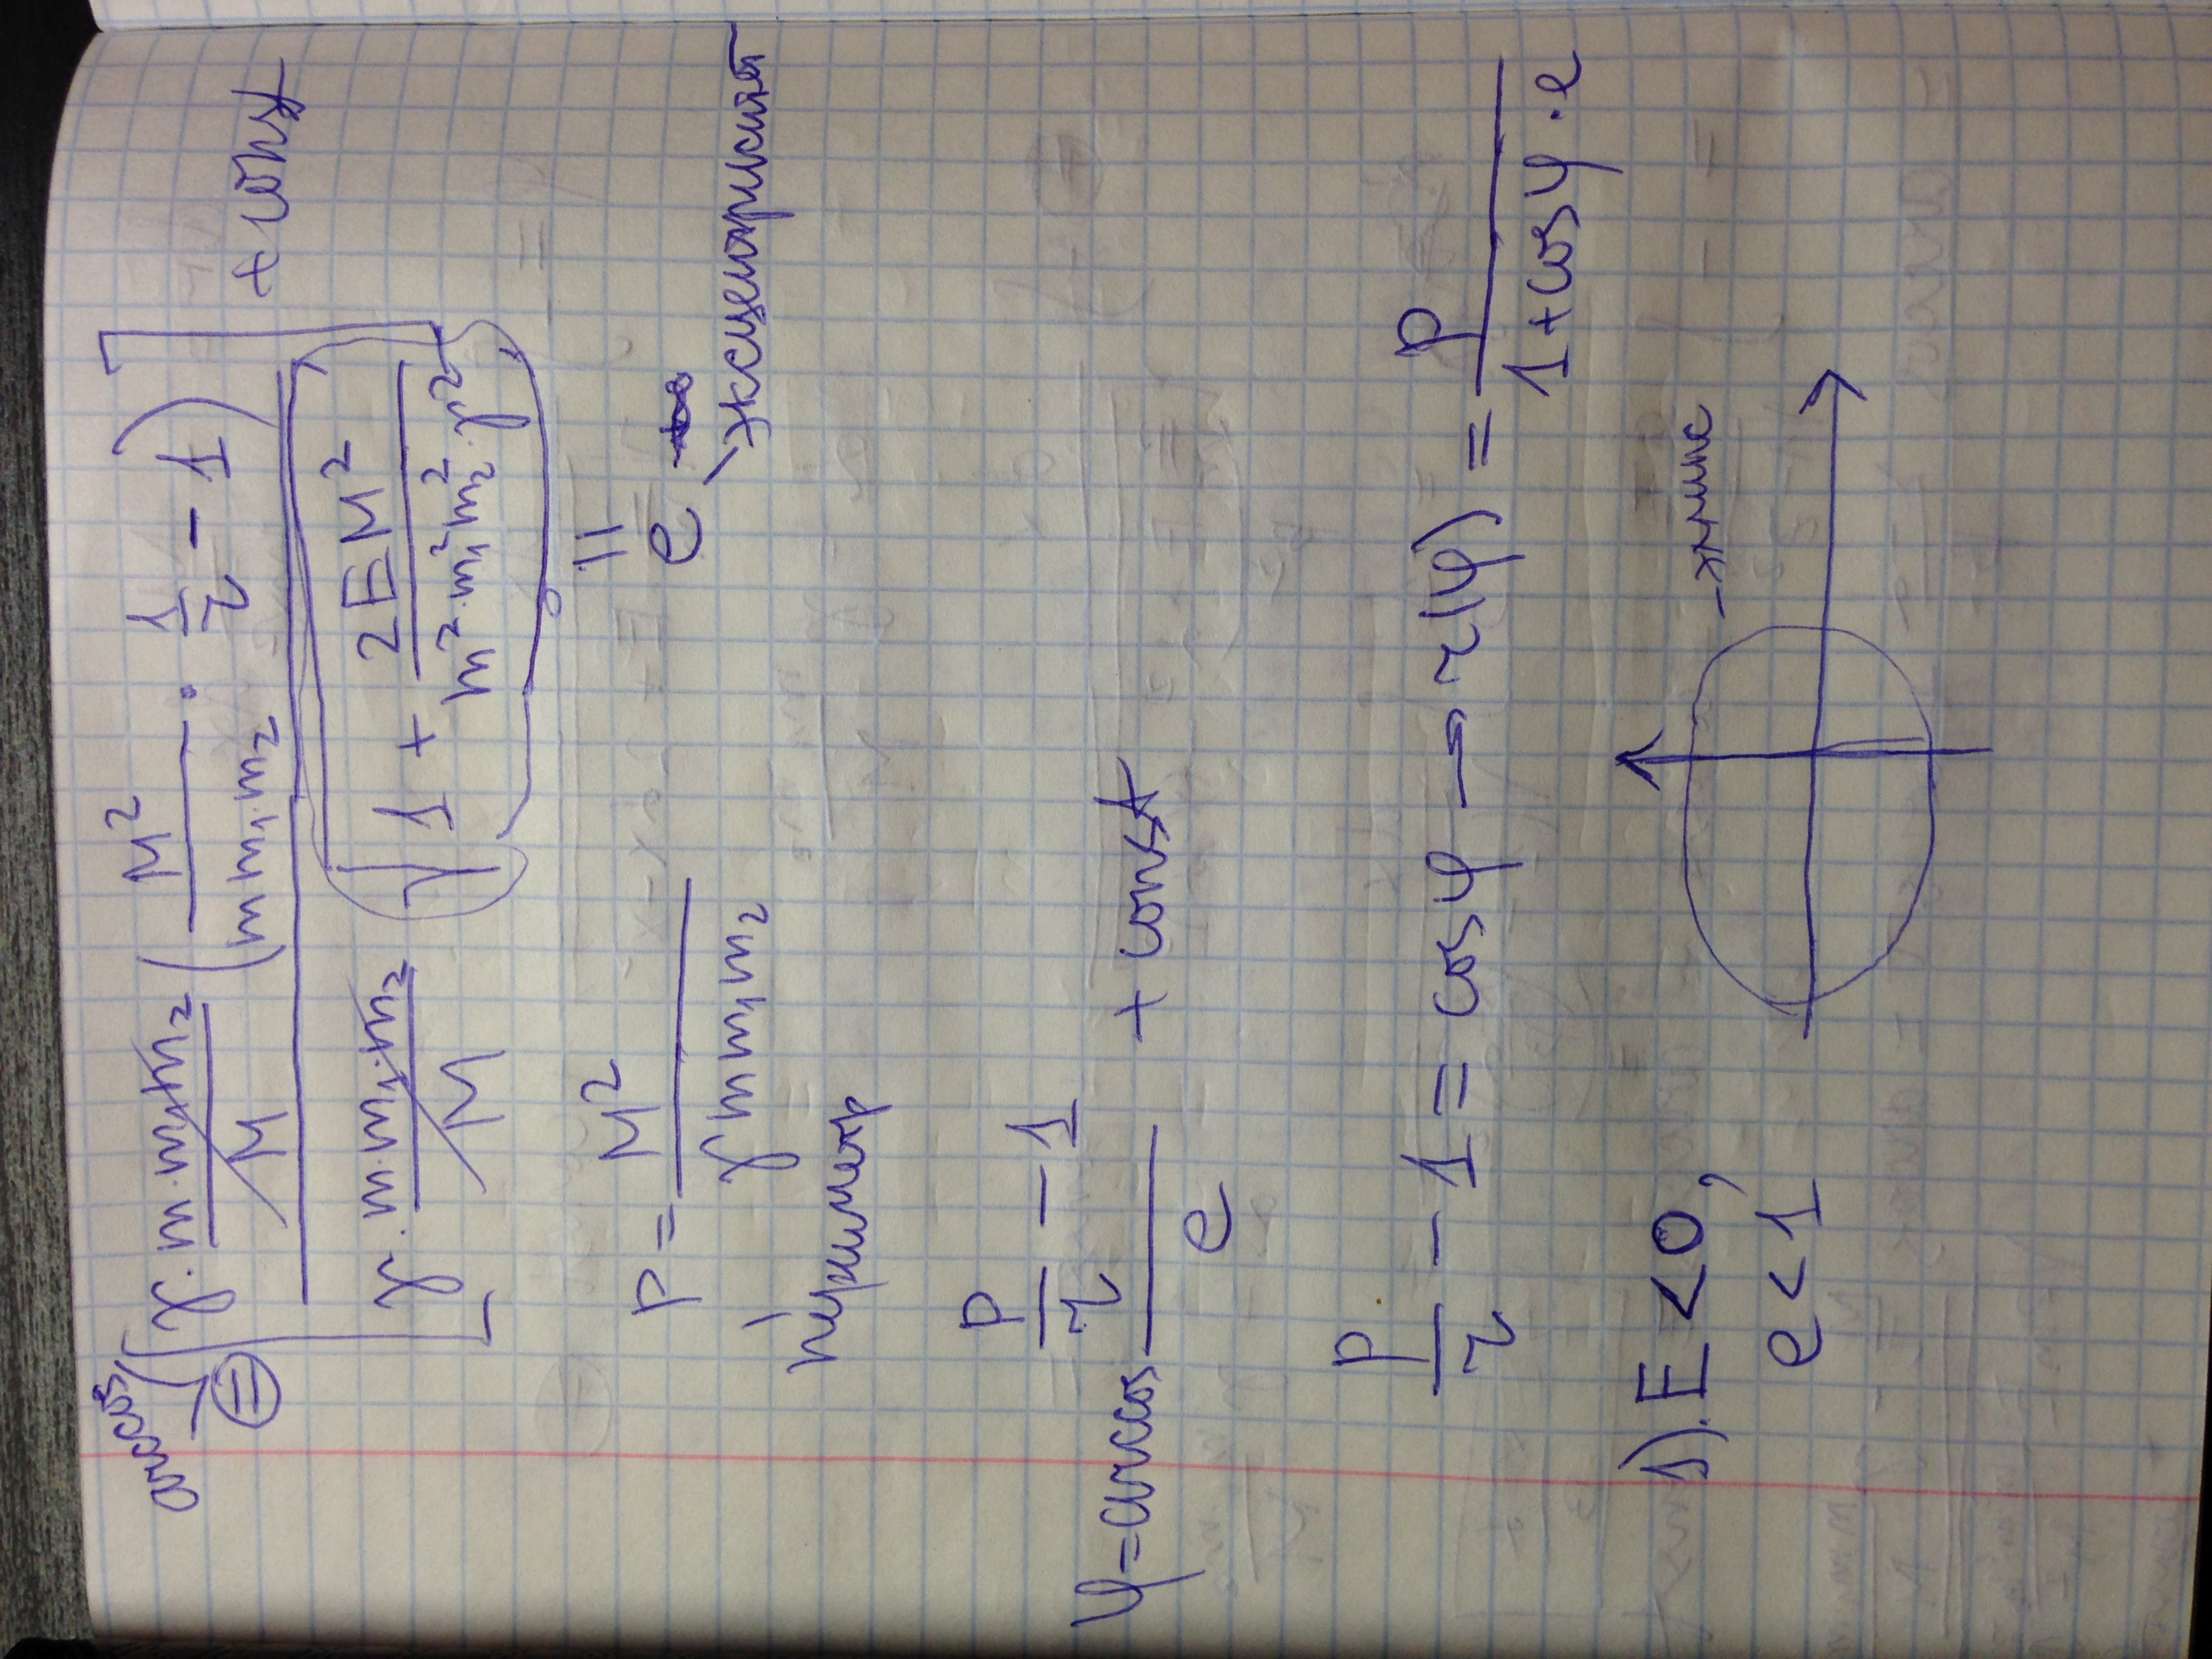 arccos
⊜ [ γ · m·m₁·m₂/M ( M²/(m m₁ m₂) · 1/r − 1 ) / ( γ · m·m₁·m₂/M √(1 + 2EM²/(m²·m₁²m₂²·γ²)) ) ] + const
p = M²/(γ m m₁ m₂)
"
e
эксцентриситет
параметр
φ = arccos (p/r − 1)/e + const
p/r − 1 = cosφ → r(φ) = p/(1+cosφ·e)
1). E<0,
e<1
– эллипс